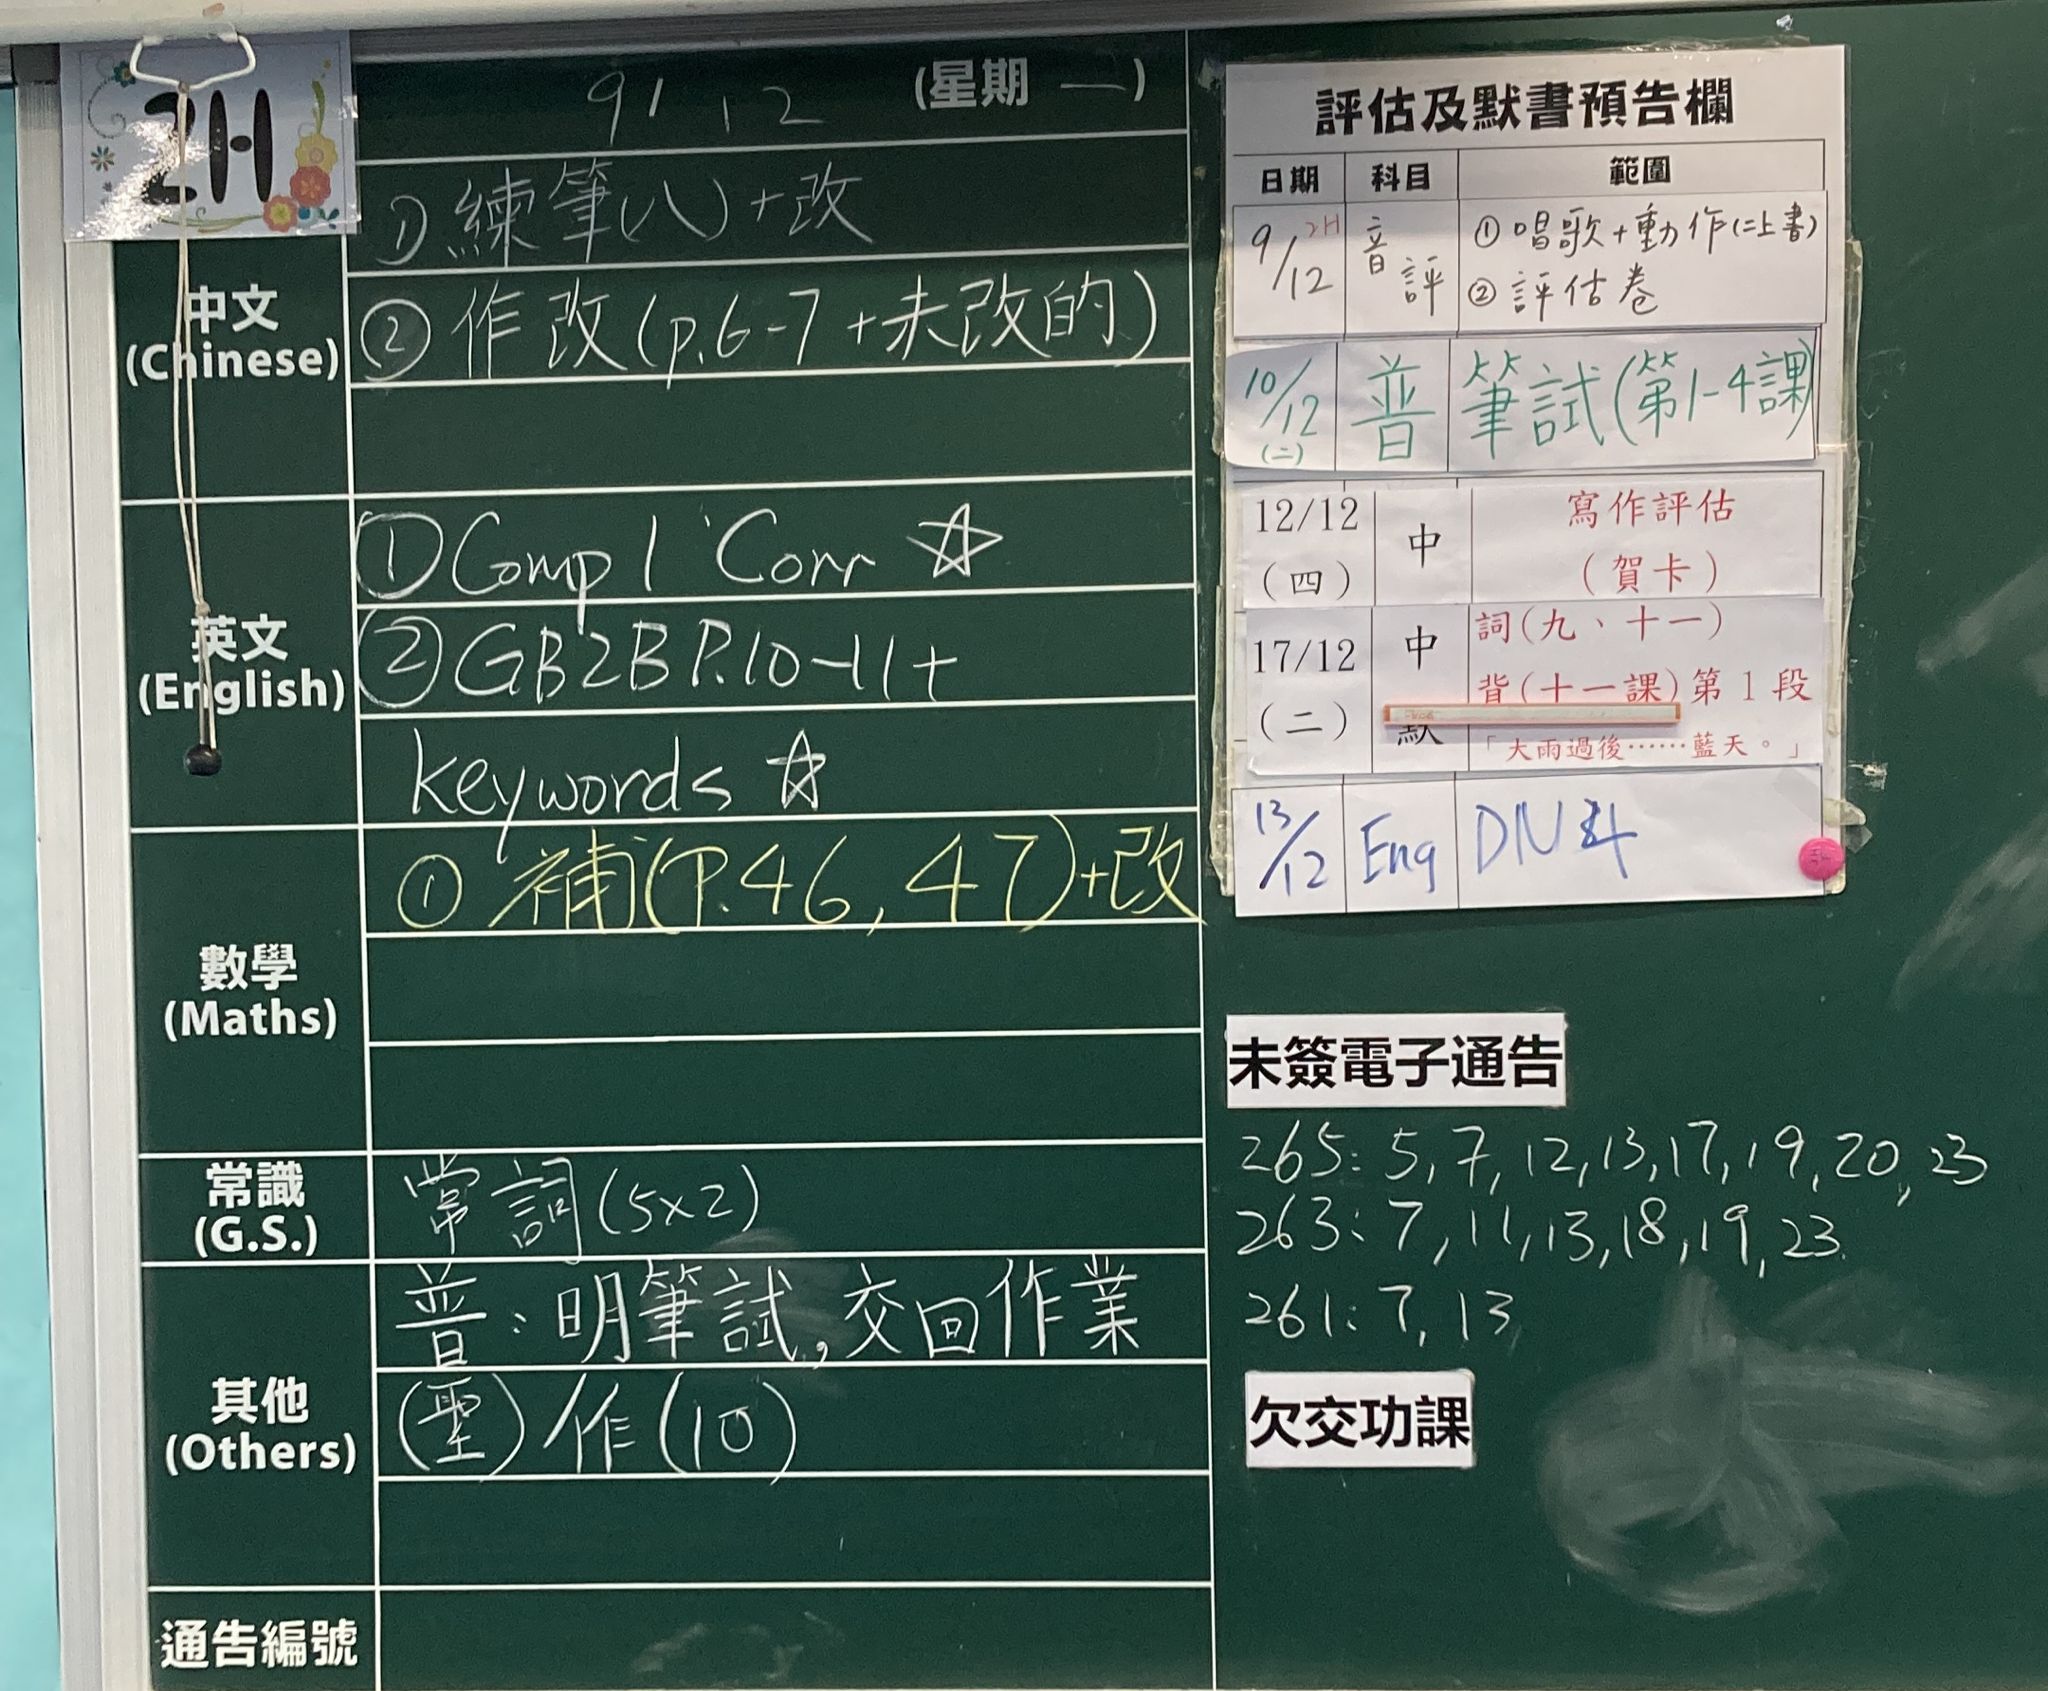 2H
9/12 (星期 一)
中文
(Chinese)
① 練筆(八)+改
② 作改(p.6-7+未改的)
英文
(English)
① Comp 1 Corr ☆
② GB2B P.10-11+
keywords ☆
數學
(Maths)
① 補(P.46, 47)+改
常識
(G.S.)
常詞(5x2)
其他
(Others)
普：明筆試，交回作業
(聖)作(10)
通告編號
評估及默書預告欄
日期 科目 範圍
9/12 2H 音評 ① 唱歌+動作(二上書)
② 評估卷
10/12 (二) 普 筆試(第1-4課)
12/12 (四) 中 寫作評估
(賀卡)
17/12 (二) 中默 詞(九、十一)
背(十一課)第1段
「大雨過後……藍天。」
13/12 Eng DN
未簽電子通告
265: 5, 7, 12, 13, 17, 19, 20, 23
263: 7, 11, 13, 18, 19, 23
261: 7, 13
欠交功課